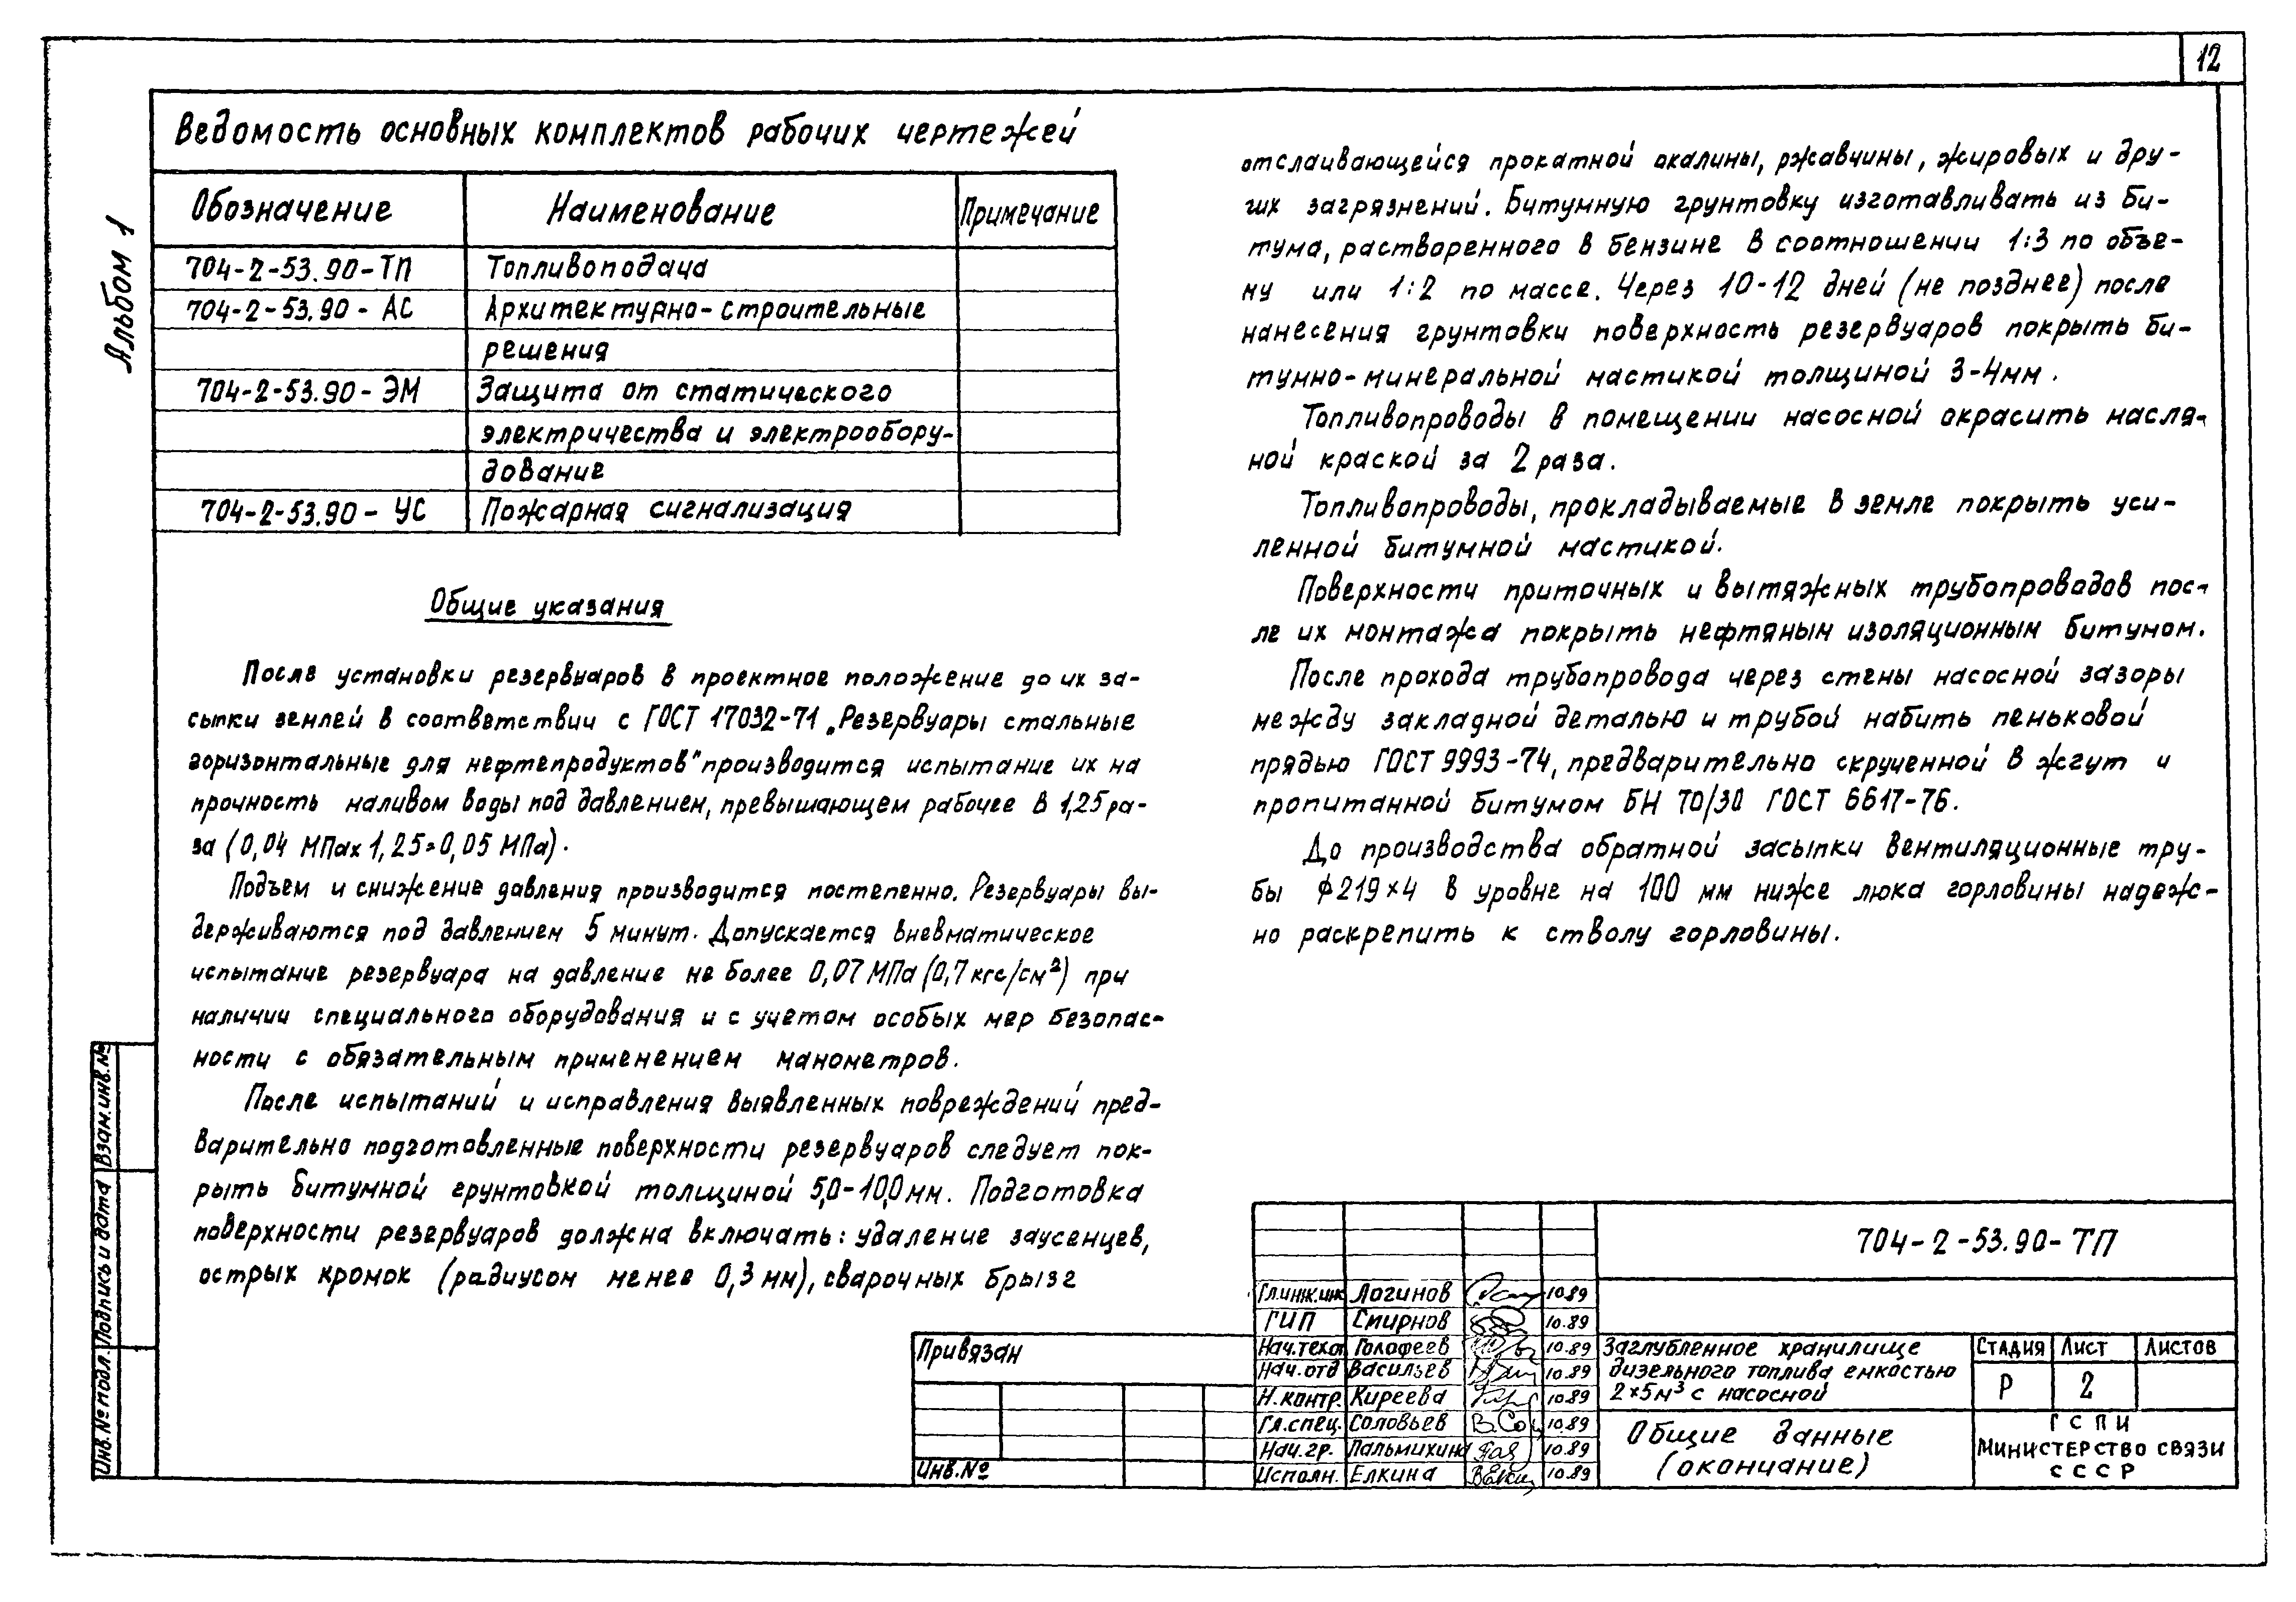 12
Альбом 1
Ведомость основных комплектов рабочих чертежей
Обозначение Наименование Примечание
704-2-53.90-ТП Топливоподача
704-2-53.90-АС Архитектурно-строительные
решения
704-2-53.90-ЭМ Защита от статического
электричества и электрообору-
дование
704-2-53.90-УС Пожарная сигнализация
Общие указания
После установки резервуаров в проектное положение до их за-
сыпки землей в соответствии с ГОСТ 17032-71 „Резервуары стальные
горизонтальные для нефтепродуктов" производится испытание их на
прочность наливом воды под давлением, превышающем рабочее в 1,25 ра-
за (0,04 МПа х 1,25=0,05 МПа).
Подъем и снижение давления производится постепенно. Резервуары вы-
держиваются под давлением 5 минут. Допускается пневматическое
испытание резервуара на давление не более 0,07 МПа (0,7 кгс/см²) при
наличии специального оборудования и с учетом особых мер безопас-
ности с обязательным применением манометров.
После испытаний и исправления выявленных повреждений пред-
варительно подготовленные поверхности резервуаров следует пок-
рыть битумной грунтовкой толщиной 5,0-10,0 мм. Подготовка
поверхности резервуаров должна включать: удаление заусенцев,
острых кромок (радиусом менее 0,3 мм), сварочных брызг
отслаивающейся прокатной окалины, ржавчины, жировых и дру-
гих загрязнений. Битумную грунтовку изготавливать из би-
тума, растворенного в бензине в соотношении 1:3 по объе-
му или 1:2 по массе. Через 10-12 дней (не позднее) после
нанесения грунтовки поверхность резервуаров покрыть би-
тумно-минеральной мастикой толщиной 3-4мм.
Топливопроводы в помещении насосной окрасить масля-
ной краской за 2 раза.
Топливопроводы, прокладываемые в земле покрыть уси-
ленной битумной мастикой.
Поверхности приточных и вытяжных трубопроводов пос-
ле их монтажа покрыть нефтяным изоляционным битумом.
После прохода трубопровода через стены насосной зазоры
между закладной деталью и трубой набить пеньковой
прядью ГОСТ 9993-74, предварительно скрученной в жгут и
пропитанной битумом БН 70/30 ГОСТ 6617-76.
До производства обратной засыпки вентиляционные тру-
бы ϕ219×4 в уровне на 100 мм ниже люка горловины надеж-
но раскрепить к стволу горловины.
Взам.инв.№
Подпись и дата
Инв.№ подл.
Привязан
Инв.№
704-2-53.90-ТП
Гл.инж.инс Логинов 10.89
ГИП Смирнов 10.89
Нач.техо Голофеев 10.89
Нач.отд Васильев 10.89
Н.контр. Киреева 10.89
Гл.спец. Соловьев 10.89
Нач.гр. Пальмихина 10.89
Исполн. Елкина 10.89
Заглубленное хранилище
дизельного топлива емкостью
2×5м³ с насосной
Стадия Лист Листов
Р 2
Общие данные
(окончание)
ГСПИ
Министерство связи
СССР